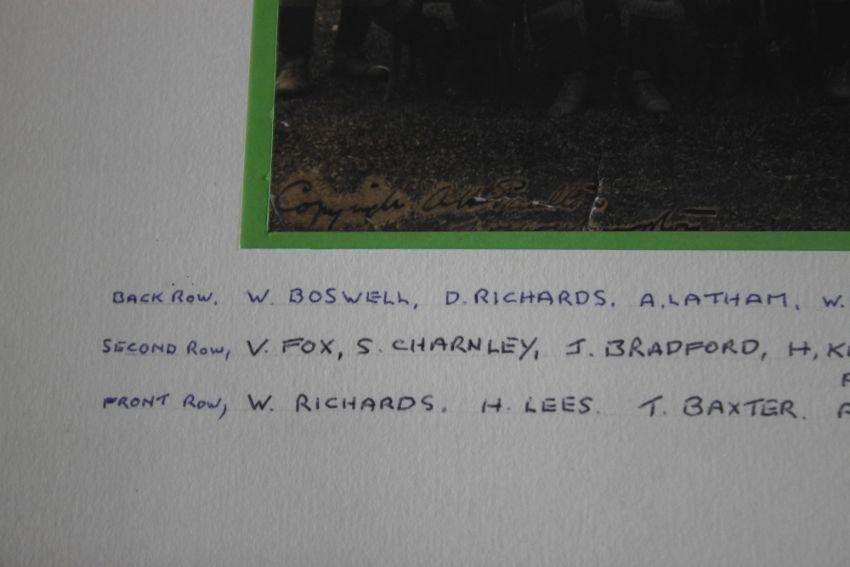 Copyright
BACK ROW. W. BOSWELL, D. RICHARDS. A. LATHAM. W.
SECOND ROW, V. FOX, S. CHARNLEY, J. BRADFORD, H,
FRONT ROW, W. RICHARDS. H. LEES. T. BAXTER.